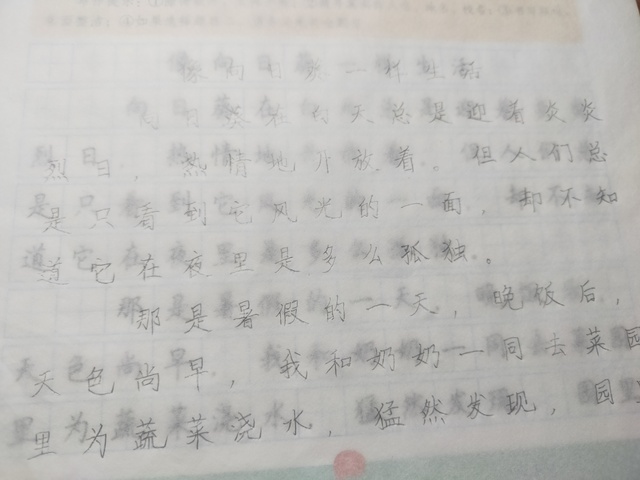 像向日葵一样生活
向日葵在白天总是迎着炎炎
烈日，热情地开放着。但人们总
是只看到它风光的一面，却不知
道它在夜里是多么孤独。
那是暑假的一天，晚饭后，
天色尚早，我和奶奶一同去菜园
里为蔬菜浇水，猛然发现，园